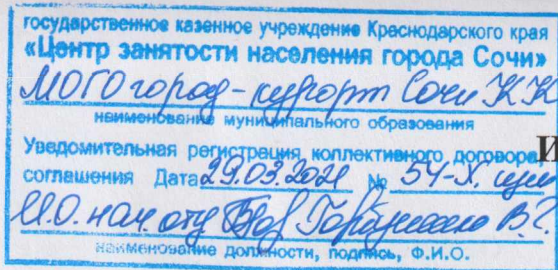 государственное казенное учреждение Краснодарского края
«Центр занятости населения города Сочи»
МОГО город-курорт Сочи КК
наименование муниципального образования
Уведомительная регистрация коллективного договора,
соглашения Дата 29.03.2021 № 54-Х.
И.О. нач. отд Горбунова В.Г.
наименование должности, подпись, Ф.И.О.
И